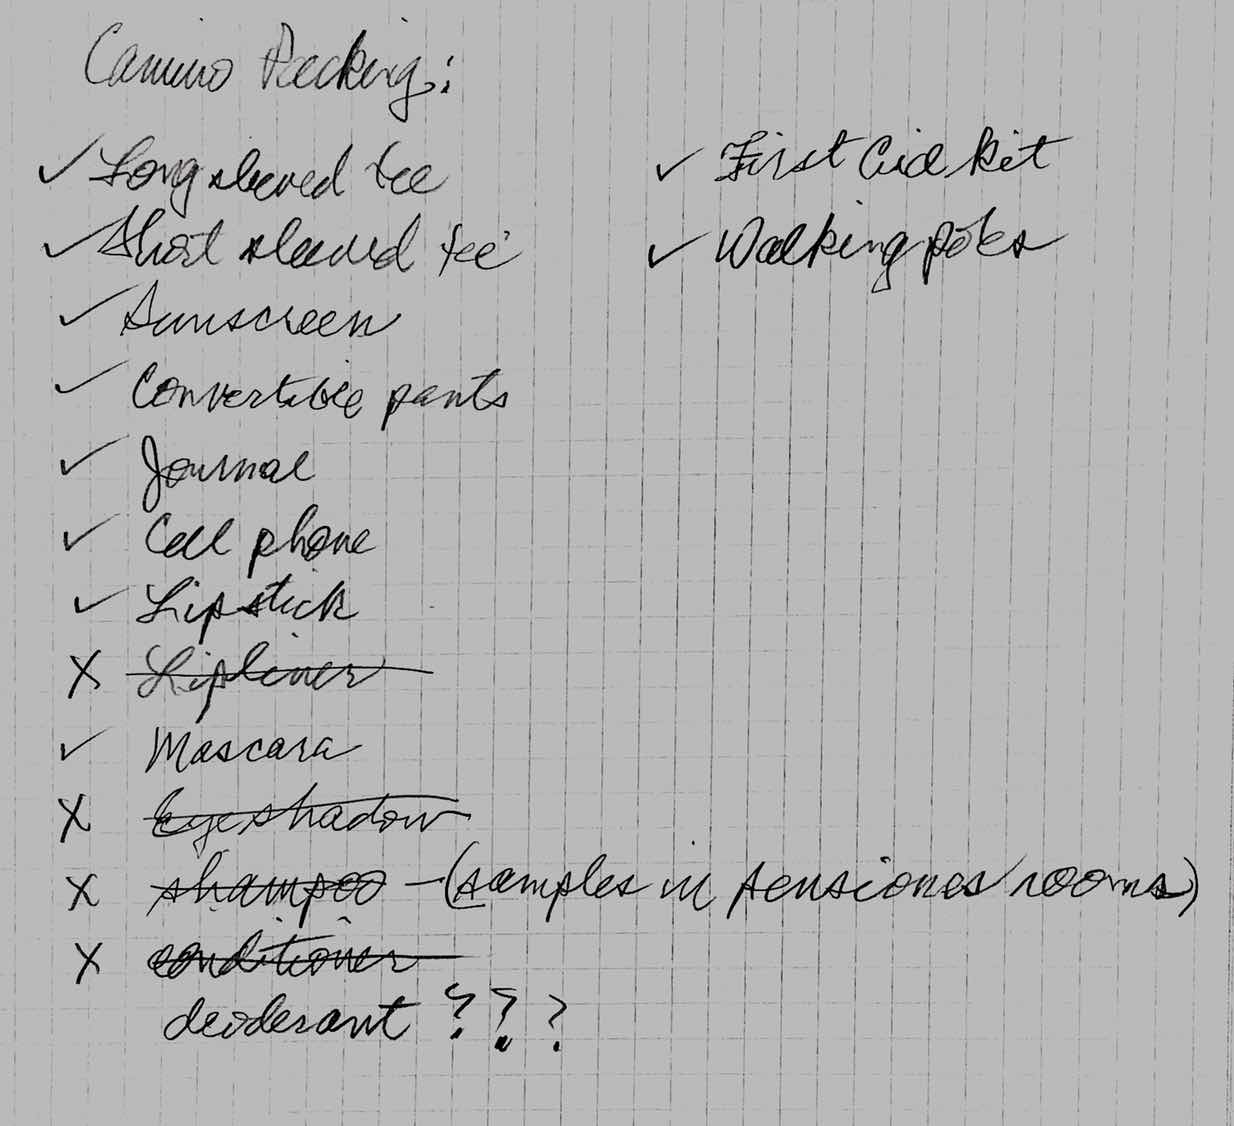 Camino Packing:
✓ Long sleeved tee
✓ Short sleeved tee
✓ Sunscreen
✓ Convertible pants
✓ Journal
✓ Cell phone
✓ Lipstick
X Lipliner
✓ Mascara
X Eyeshadow
X shampoo - (samples in pensiones rooms)
X conditioner
deoderant ???
✓ First aid kit
✓ Walking poles